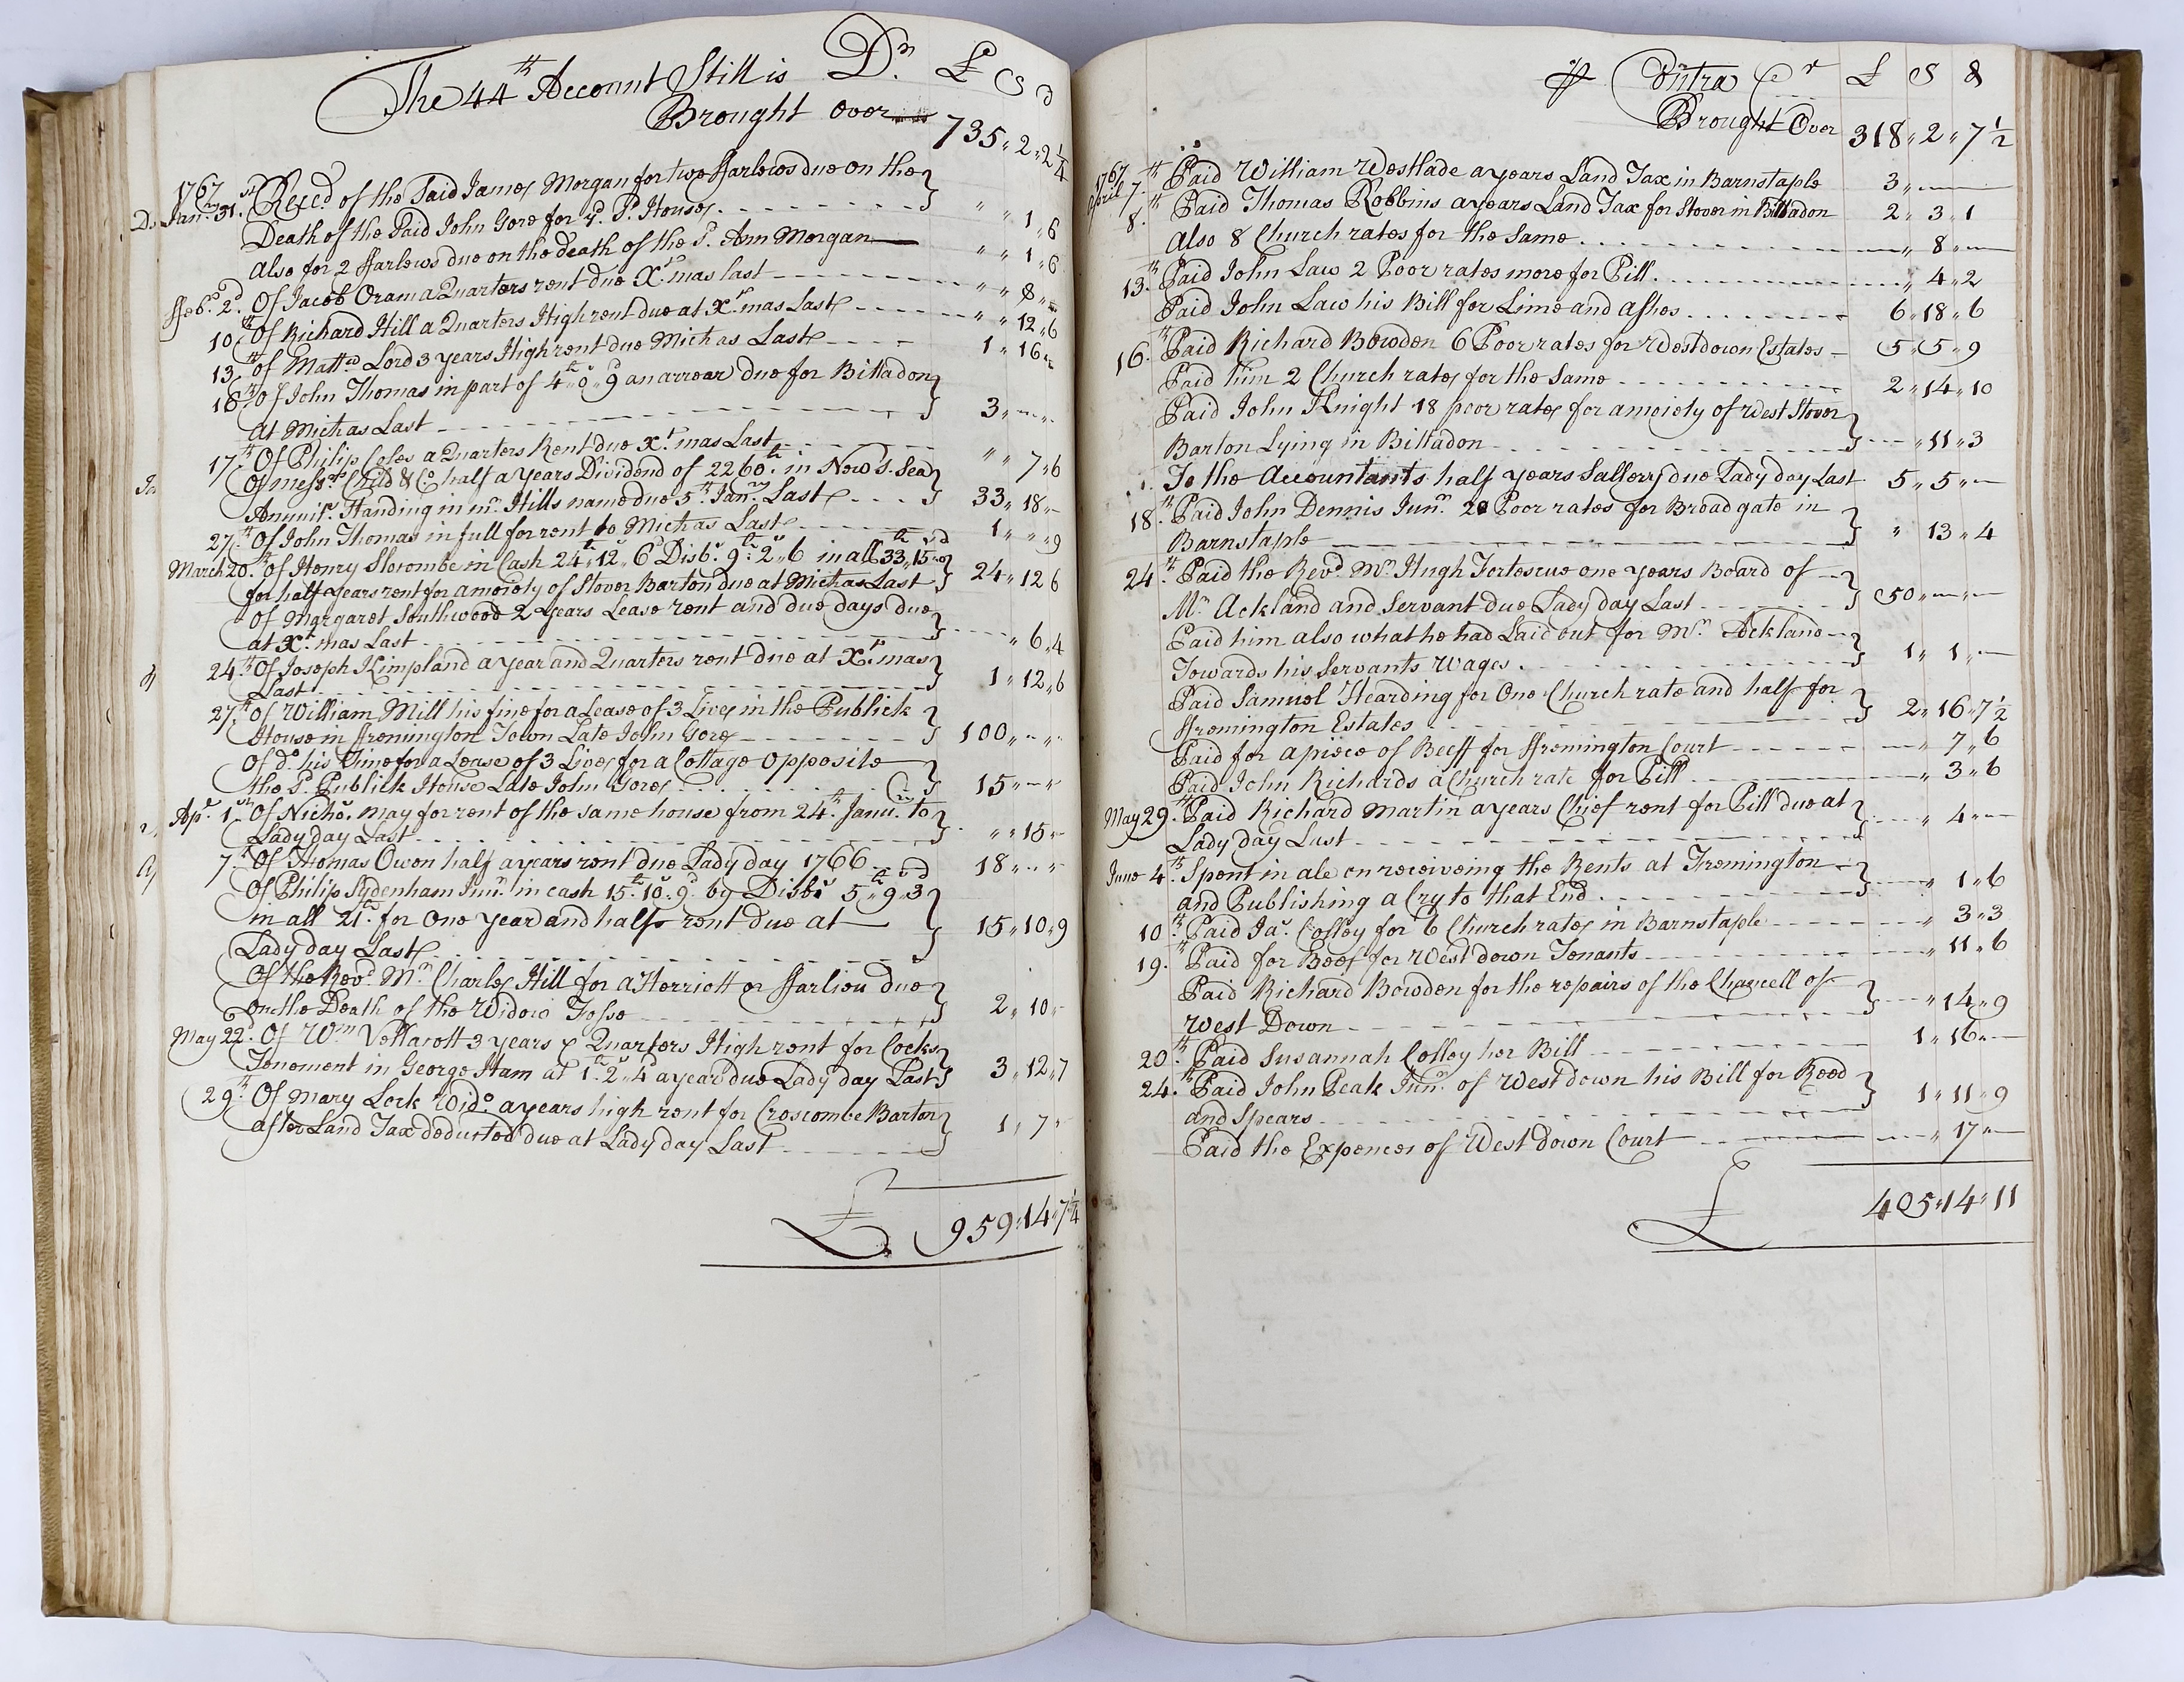 The 44th Account Still is Dr. £ S d
Brought over 735 " 2 " 2 1/4
1767
Jan:ry 31.st Reced of the Said James Morgan for two ffarlews due on the
Death of the Said John Gore for ye. Pt. Houses " " 1 " 6
Also for 2 ffarlews due on the death of the sd. Ann Morgan " " 1 " 6
ffeb:. 2d. Of Jacob Oram a Quarters rent due Xt.mas last " " 8 "
10th Of Richard Hill a Quarters High rent due at Xt.mas Last " " 12 " 6
13th of Mattw Lord 3 years High rent due Michas Last 1 " 16 "
16th Of John Thomas in part of 4 " 0 " 9 an arrear due for Bittadon
at Michas Last 3 "
17th Of Philip Coles a Quarters Rent due Xt.mas Last " " 7 " 6
Of Messrs. Child & Co. half a years Dividend of 2260 in New S. Sea
Annuits. Standing in mr. Hills name due 5th Janry. Last 33 " 18 "
27th Of John Thomas in full for rent to Michas Last 1 " " 9
March 20th Of Henry Slocombe in Cash 24 " 12 " 6 Disbs. 9 " 2 " 6 in all 33 " 15 " 0
for half years rent for a moiety of Stover Barton due at Michas Last 24 " 12 6
Of Margaret Southwood 2 years Lease rent and due days due
at Xt.mas Last " 6 " 4
24th Of Joseph Kimpland a year and Quarters rent due at Xt.mas
Last 1 " 12 " 6
27th Of William Mill his fine for a Lease of 3 Lives in the Publick
House in ffremington Town Late John Gores 100 "
Of do. his Fine for a Lease of 3 Lives for a Cottage opposite
the sd. Publick House Late John Gores 15 "
Apl. 1st Of Nichs. May for rent of the same house from 24th Janu. to
Lady day Last " " 15 "
7th Of Thomas Owen half a years rent due Lady day 1766 18 "
Of Philip Sydenham Junr. in cash 15 " 10 " 9 by Disbs 5 " 9 " 3
in all 21 for One year and half rent due at
Lady day Last 15 " 10 " 9
Of the Revd. Mr. Charles Hill for a Herriott or ffarlieu due
on the Death of the Widow Fosse 2 " 10 "
May 22d. Of Wm Vellacott 3 years & Quarters High rent for Cocks
Tenement in George Ham at 1 " 2 " 4 a year due Lady day Last 3 " 12 " 7
29th Of Mary Lock Wido. a years high rent for Croscombe Barton
after Land Tax deducted due at Lady day Last 1 " 7 "
£ 959 " 14 " 7 1/4
Contra Cr £ S d
Brought Over 318 " 2 " 7 1/2
1767
April 7th Paid William Westlade a years Land Tax in Barnstaple 3 "
8th Paid Thomas Robbins a years Land Tax for Stover in Bittadon 2 " 3 " 1
Also 8 Church rates for the Same " 8 "
13th Paid John Law 2 Poor rates more for Pill " 4 " 2
Paid John Law his Bill for Lime and Ashes 6 " 18 " 6
16th Paid Richard Bowden 6 Poor rates for Westdown Estates 5 " 5 " 9
Paid him 2 Church rates for the Same 2 " 14 " 10
Paid John Knight 18 poor rates for a moiety of West Stover
Barton Lying in Bittadon " 11 " 3
To the Accountants half years Sallery due Lady day Last 5 " 5 "
18th Paid John Dennis Junr. 20 Poor rates for Broadgate in
Barnstaple " 13 " 4
24th Paid the Revd. Mr Hugh Fortescue one years Board of
Mr Ackland and Servant due Lady day Last 50 "
Paid him also what he had Laid out for Mr Ackland
Towards his Servants Wages 1 " 1 "
Paid Samuel Hearding for One Church rate and half for
ffremington Estates 2 " 16 " 7 1/2
Paid for a piece of Beeff for ffremington Court " 7 " 6
Paid John Richards a Church rate for Pill " 3 " 6
May 29th Paid Richard Martin a years Chief rent for Pill due at
Lady day Last " 4 "
June 4th Spent in ale on receiveing the Rents at Fremington
and Publishing a Cry to that End " 1 " 6
10th Paid Jas. Colley for 6 Church rates in Barnstaple " 3 " 3
19th Paid for Beef for West down Tenants " 11 " 6
Paid Richard Bowden for the repairs of the Chancell of
West Down " 14 " 9
20th Paid Susannah Colley her Bill 1 " 16 "
24th Paid John Peak Junr. of West down his Bill for Reed
and Spears 1 " 11 " 9
Paid the Expences of West down Court " 17 "
£ 405 " 14 " 11